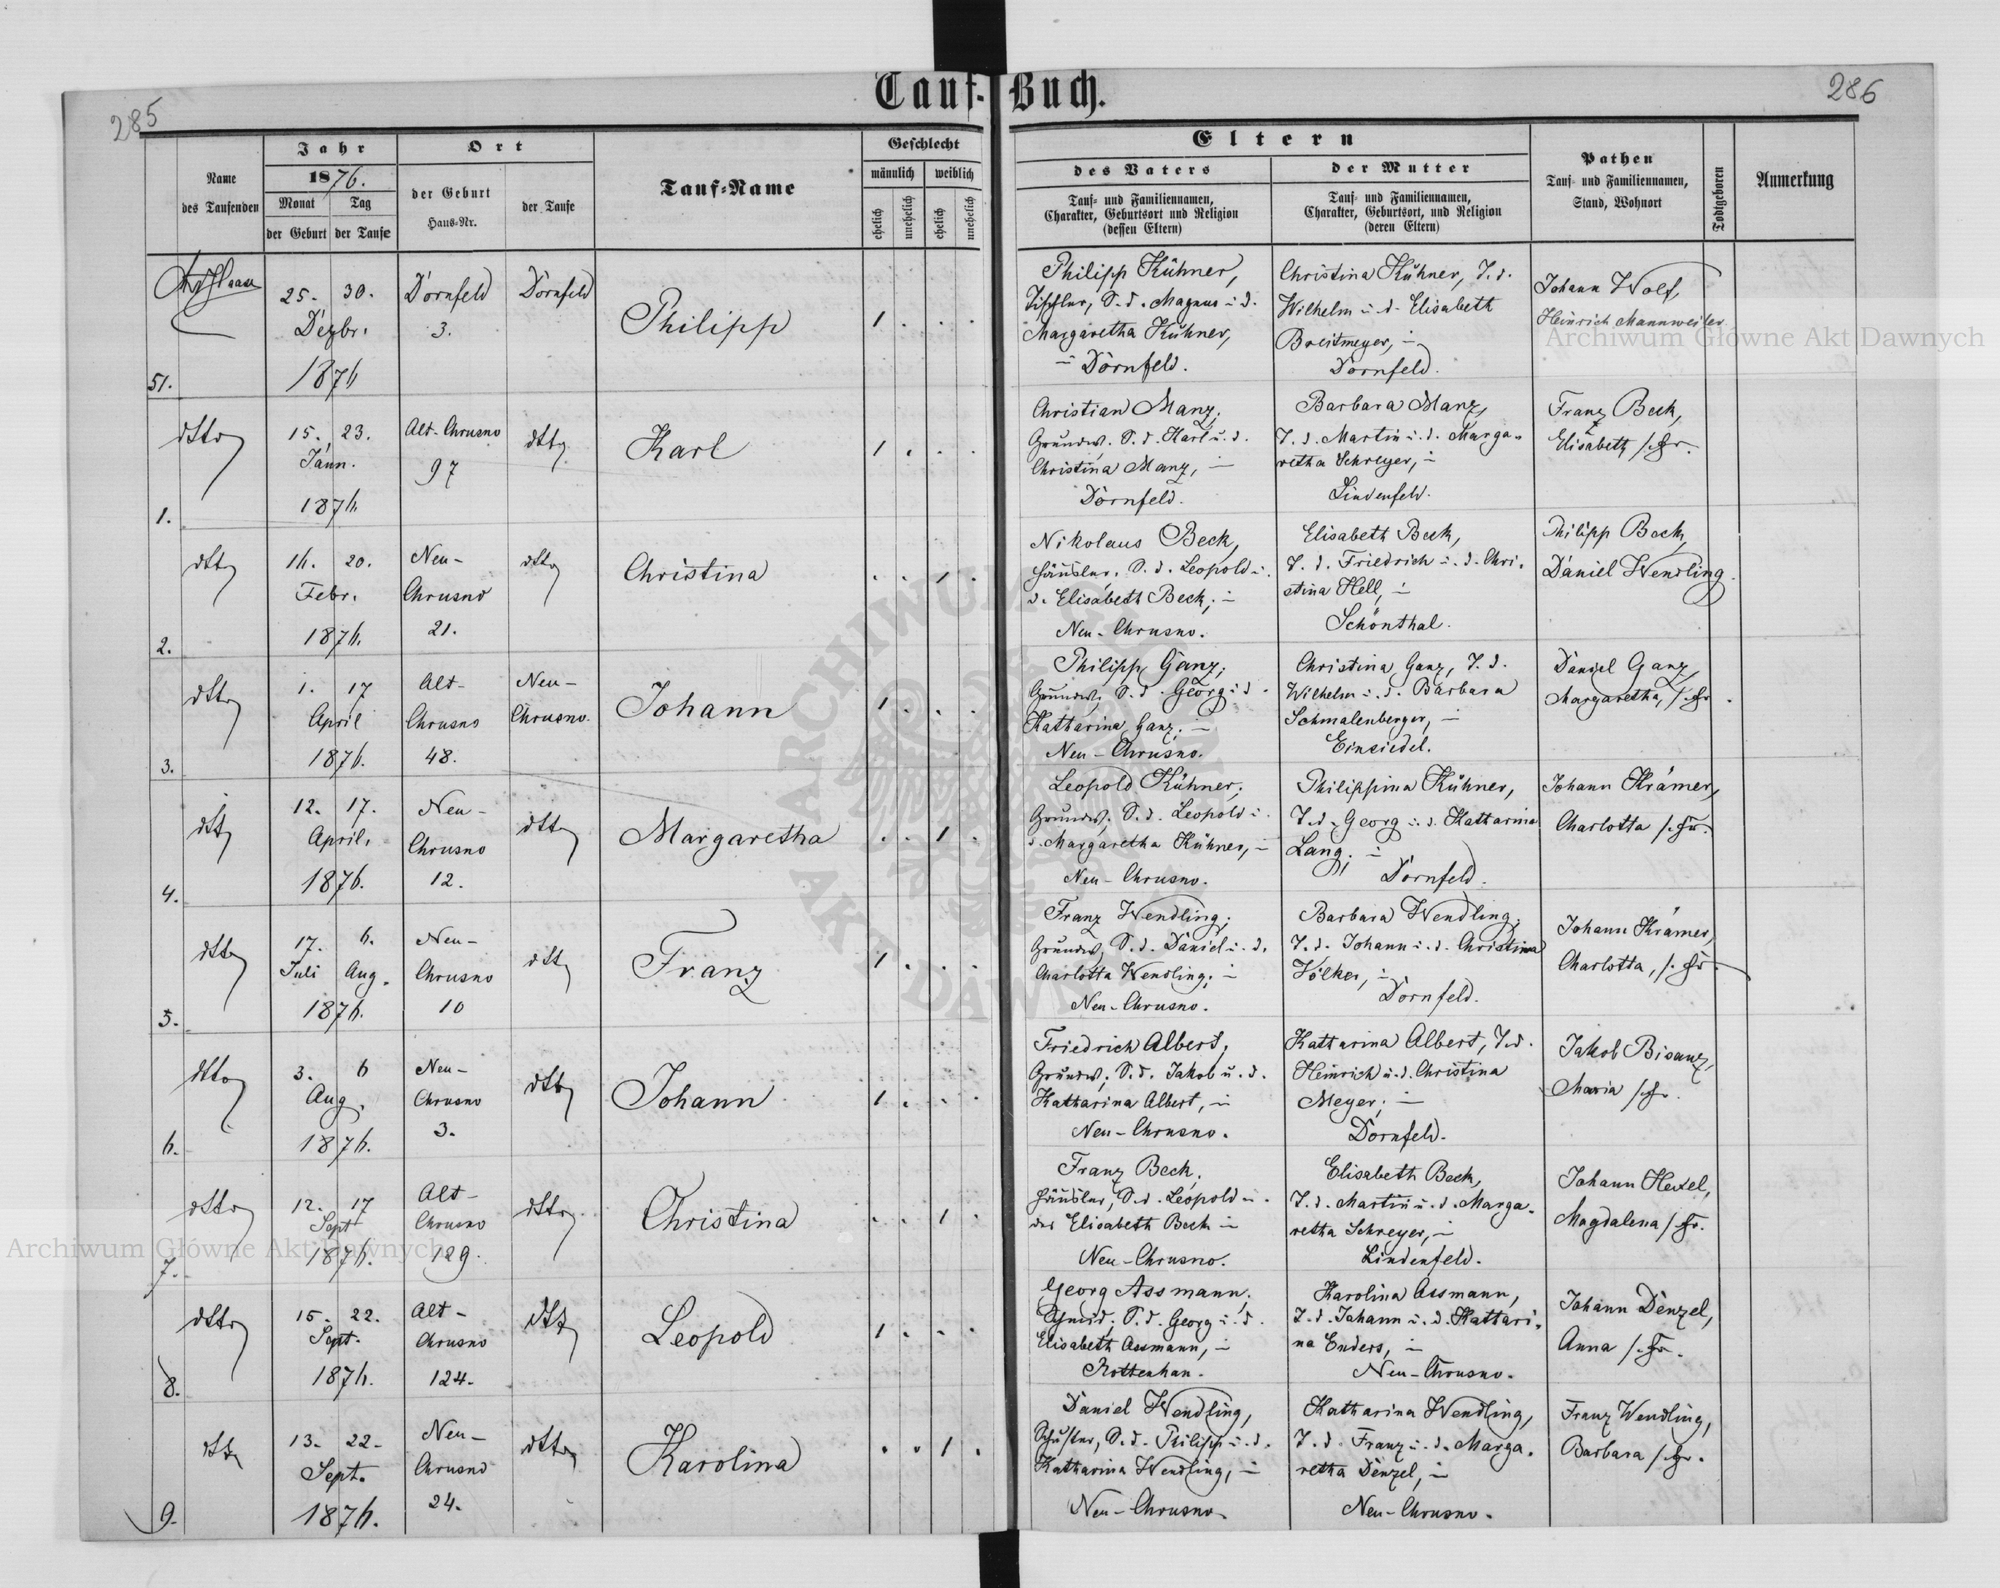 Tauf-Buch.
285
286
Name
des Taufenden
Jahr
1876.
Monat Tag
der Geburt der Taufe
Ort
der Geburt
Haus-Nr.
der Taufe
Tauf-Name
Geschlecht
männlich weiblich
ehelich
unehelich
ehelich
unehelich
Eltern
des Vaters
Tauf- und Familiennamen,
Charakter, Geburtsort und Religion
(dessen Eltern)
der Mutter
Tauf- und Familiennamen,
Charakter, Geburtsort, und Religion
(deren Eltern)
Pathen
Tauf- und Familiennamen,
Stand, Wohnort
Todtgeboren
Anmerkung
51.
25. 30.
Dezbr.
1876
Dornfeld
3.
Dornfeld
Philipp
1 . . .
Philipp Kühner,
Tischler, S. d. Magnus u. d.
Margaretha Kühner,
Dornfeld.
Christina Kühner, T. d.
Wilhelm u. d. Elisabeth
Breitmeyer,
Dornfeld.
Johann Wolf,
Heinrich Mannweiler
1.
dtto
15. 23.
Jänn.
1876
Alt-Chrusno
97
dtto
Karl
1 . . .
Christian Manz,
Grundw. S. d. Karl u. d.
Christina Manz,
Dornfeld.
Barbara Manz,
T. d. Martin u. d. Marga-
retha Schreyer,
Lindenfeld.
Franz Beck,
Elisabeth s. Fr.
2.
dtto
16. 20.
Febr.
1876.
Neu-
Chrusno
21.
dtto
Christina
. . 1 .
Nikolaus Beck,
Häusler, S. d. Leopold u.
d. Elisabeth Beck,
Neu-Chrusno.
Elisabeth Beck,
T. d. Friedrich u. d. Chri-
stina Hell,
Schönthal.
Philipp Beck,
Daniel Wendling.
3.
dtto
1. 17
April
1876.
Alt-
Chrusno
48.
Neu-
Chrusno.
Johann
1 . . .
Philipp Ganz,
Grundw, S. d. Georg u. d.
Katharina Ganz,
Neu-Chrusno.
Christina Ganz, T. d.
Wilhelm u. d. Barbara
Schmalenberger,
Einsiedel.
Daniel Ganz,
Margaretha, s. Fr.
4.
dtto
12. 17.
April.
1876.
Neu-
Chrusno
12.
dtto
Margaretha
. . 1 .
Leopold Kühner,
Grundw, S. d. Leopold u.
d. Margaretha Kühner,
Neu-Chrusno.
Philippina Kühner,
T. d. Georg u. d. Katharina
Lang,
Dornfeld.
Johann Krämer,
Charlotta s. Fr.
5.
dtto
17. 6.
Juli Aug.
1876.
Neu-
Chrusno
10
dtto
Franz
1 . . .
Franz Wendling,
Grundw, S. d. Daniel u. d.
Charlotta Wendling,
Neu-Chrusno.
Barbara Wendling,
T. d. Johann u. d. Christina
Völker,
Dornfeld.
Johann Krämer,
Charlotta, s. Fr.
6.
dtto
3. 6
Aug.
1876.
Neu-
Chrusno
3.
dtto
Johann
1 . . .
Friedrich Albert,
Grundw, S. d. Jakob u. d.
Katharina Albert,
Neu-Chrusno.
Katharina Albert, T. d.
Heinrich u. d. Christina
Meyer,
Dornfeld.
Jakob Bisanz,
Maria s. Fr.
7.
dtto
12. 17
Sept
1876.
Alt-
Chrusno
129.
dtto
Christina
. . 1 .
Franz Beck,
Häusler, S. d. Leopold u.
der Elisabeth Beck
Neu-Chrusno.
Elisabeth Beck,
T. d. Martin u. d. Marga-
retha Schreyer,
Lindenfeld.
Johann Hetzel,
Magdalena s. Fr.
8.
dtto
15. 22.
Sept.
1876.
Alt-
Chrusno
124.
dtto
Leopold
1 . . .
Georg Assmann,
Schmid, S. d. Georg u. d.
Elisabeth Assmann,
Rottenhan.
Karolina Assmann,
T. d. Johann u. d. Kathari-
na Enders,
Neu-Chrusno.
Johann Denzel,
Anna s. Fr.
9.
dtto
13. 22.
Sept.
1876.
Neu-
Chrusno
24.
dtto
Karolina
. . 1 .
Daniel Wendling,
Schuster, S. d. Philipp u. d.
Katharina Wendling,
Neu-Chrusno.
Katharina Wendling,
T. d. Franz u. d. Marga-
retha Denzel,
Neu-Chrusno.
Franz Wendling,
Barbara s. Fr.
Archiwum Główne Akt Dawnych
Archiwum Główne Akt Dawnych